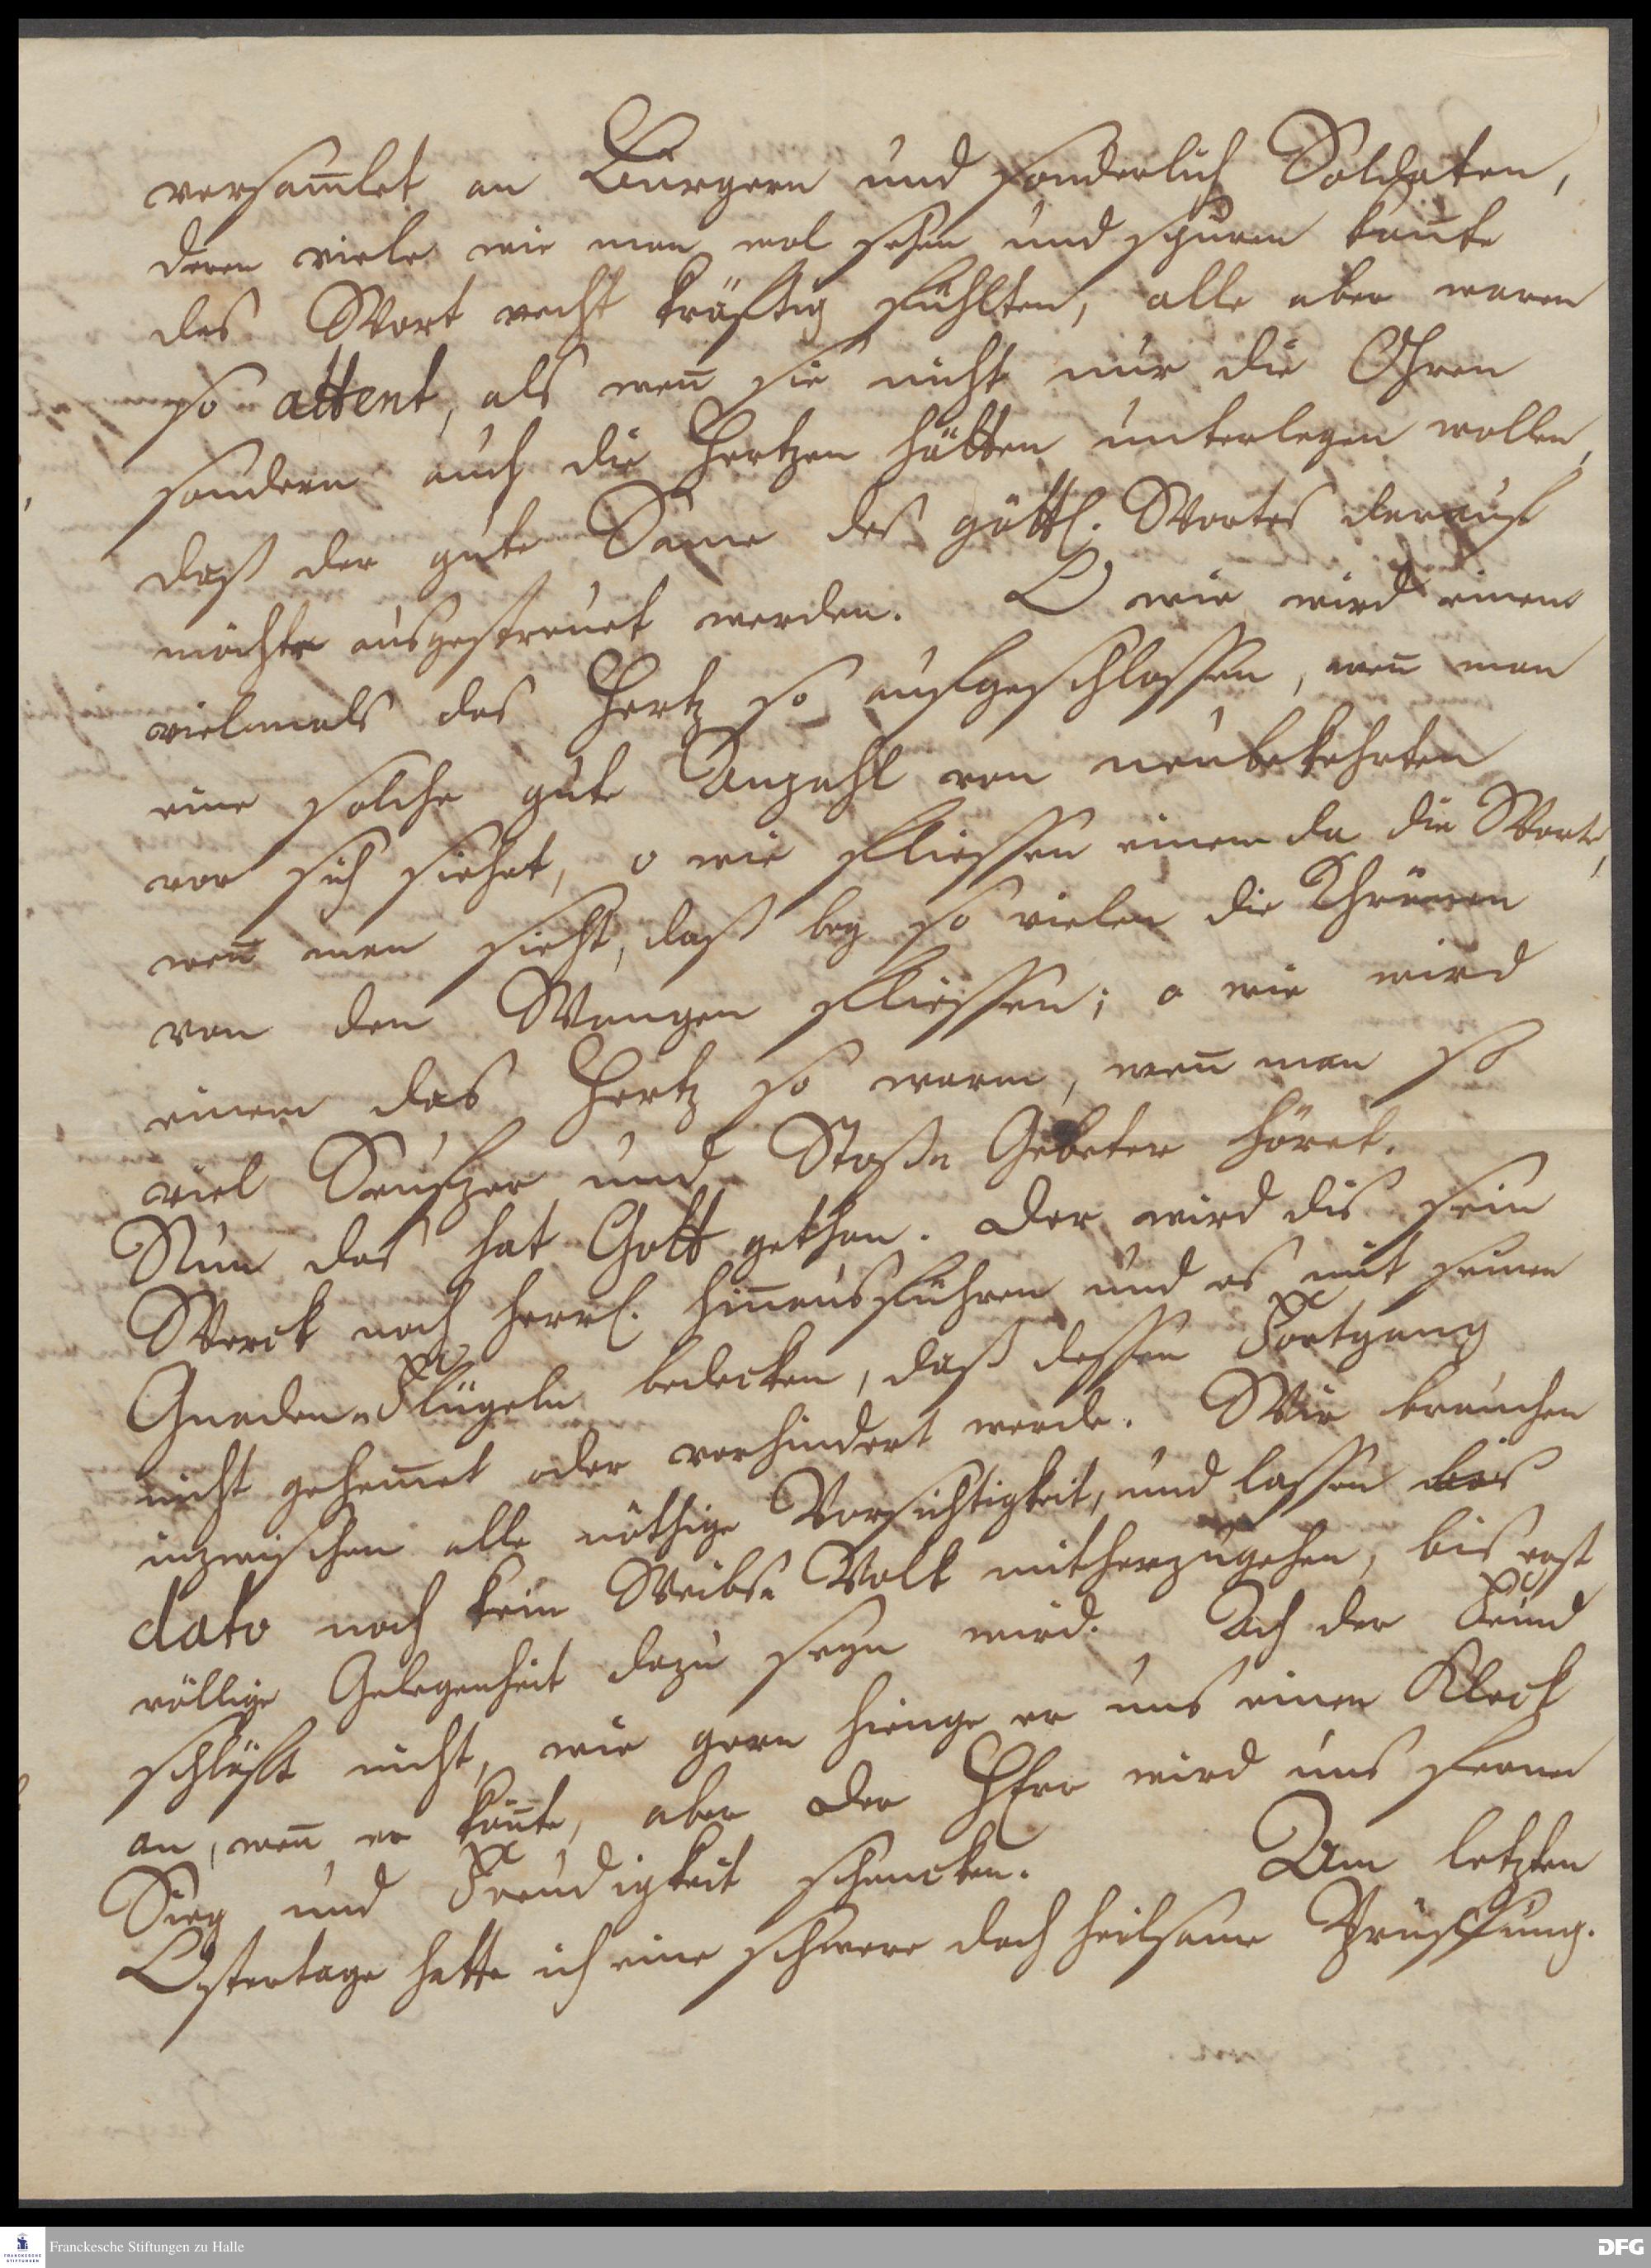 versam̄let an Bürgern und sonderlich Soldaten,
deren viele wie man wol sehen und spüren kon̄te
das Wort recht kräftig fühlten, alle aber waren
so attent, als wen̄ sie nicht nur die Ohren
sondern auch die Hertzen hätten unterlegen wollen,
daß der gute Same des göttl. Wortes darauf
möchte ausgestreuet werden. O wie wird einem
vielmals das Hertz so aufgeschlossen, wen̄ man
eine solche gute Anzahl von neubekehrten
vor sich siehet, o wie fliessen einem da die Worte,
wen̄ man sieht, daß bey so vielen die Thränen
von den Wangen fliessen; o wie wird
einem das Hertz so warm, wen̄ man so
viel Seufzer und Stoß-Gebeter höret.
Nun das hat Gott gethan. Der wird dis sein
Werck noch herrl. hin̄ausführen und es mit seinen
Gnaden-Flügeln bedecken, daß dessen Fortgang
nicht gehem̄et oder verhindert werde. Wir brauchen
inzwischen alle nöthige Vorsichtigkeit, und lassen bis
dato noch kein Weibs-Volk mitherzugehen, bis erst
völlige Gelegenheit dazu seyn wird. Ach der Feind
schläft nicht, wie gern hienge er uns einen Kleck
an, wen̄ er kön̄te, aber der HErr wird uns ferner
Sieg und Freudigkeit schencken. Am letzten
Ostertage hatte ich eine schwere doch heilsame Prüffung.
Franckesche Stiftungen zu Halle
FRANCKESCHE STIFTUNGEN
DFG